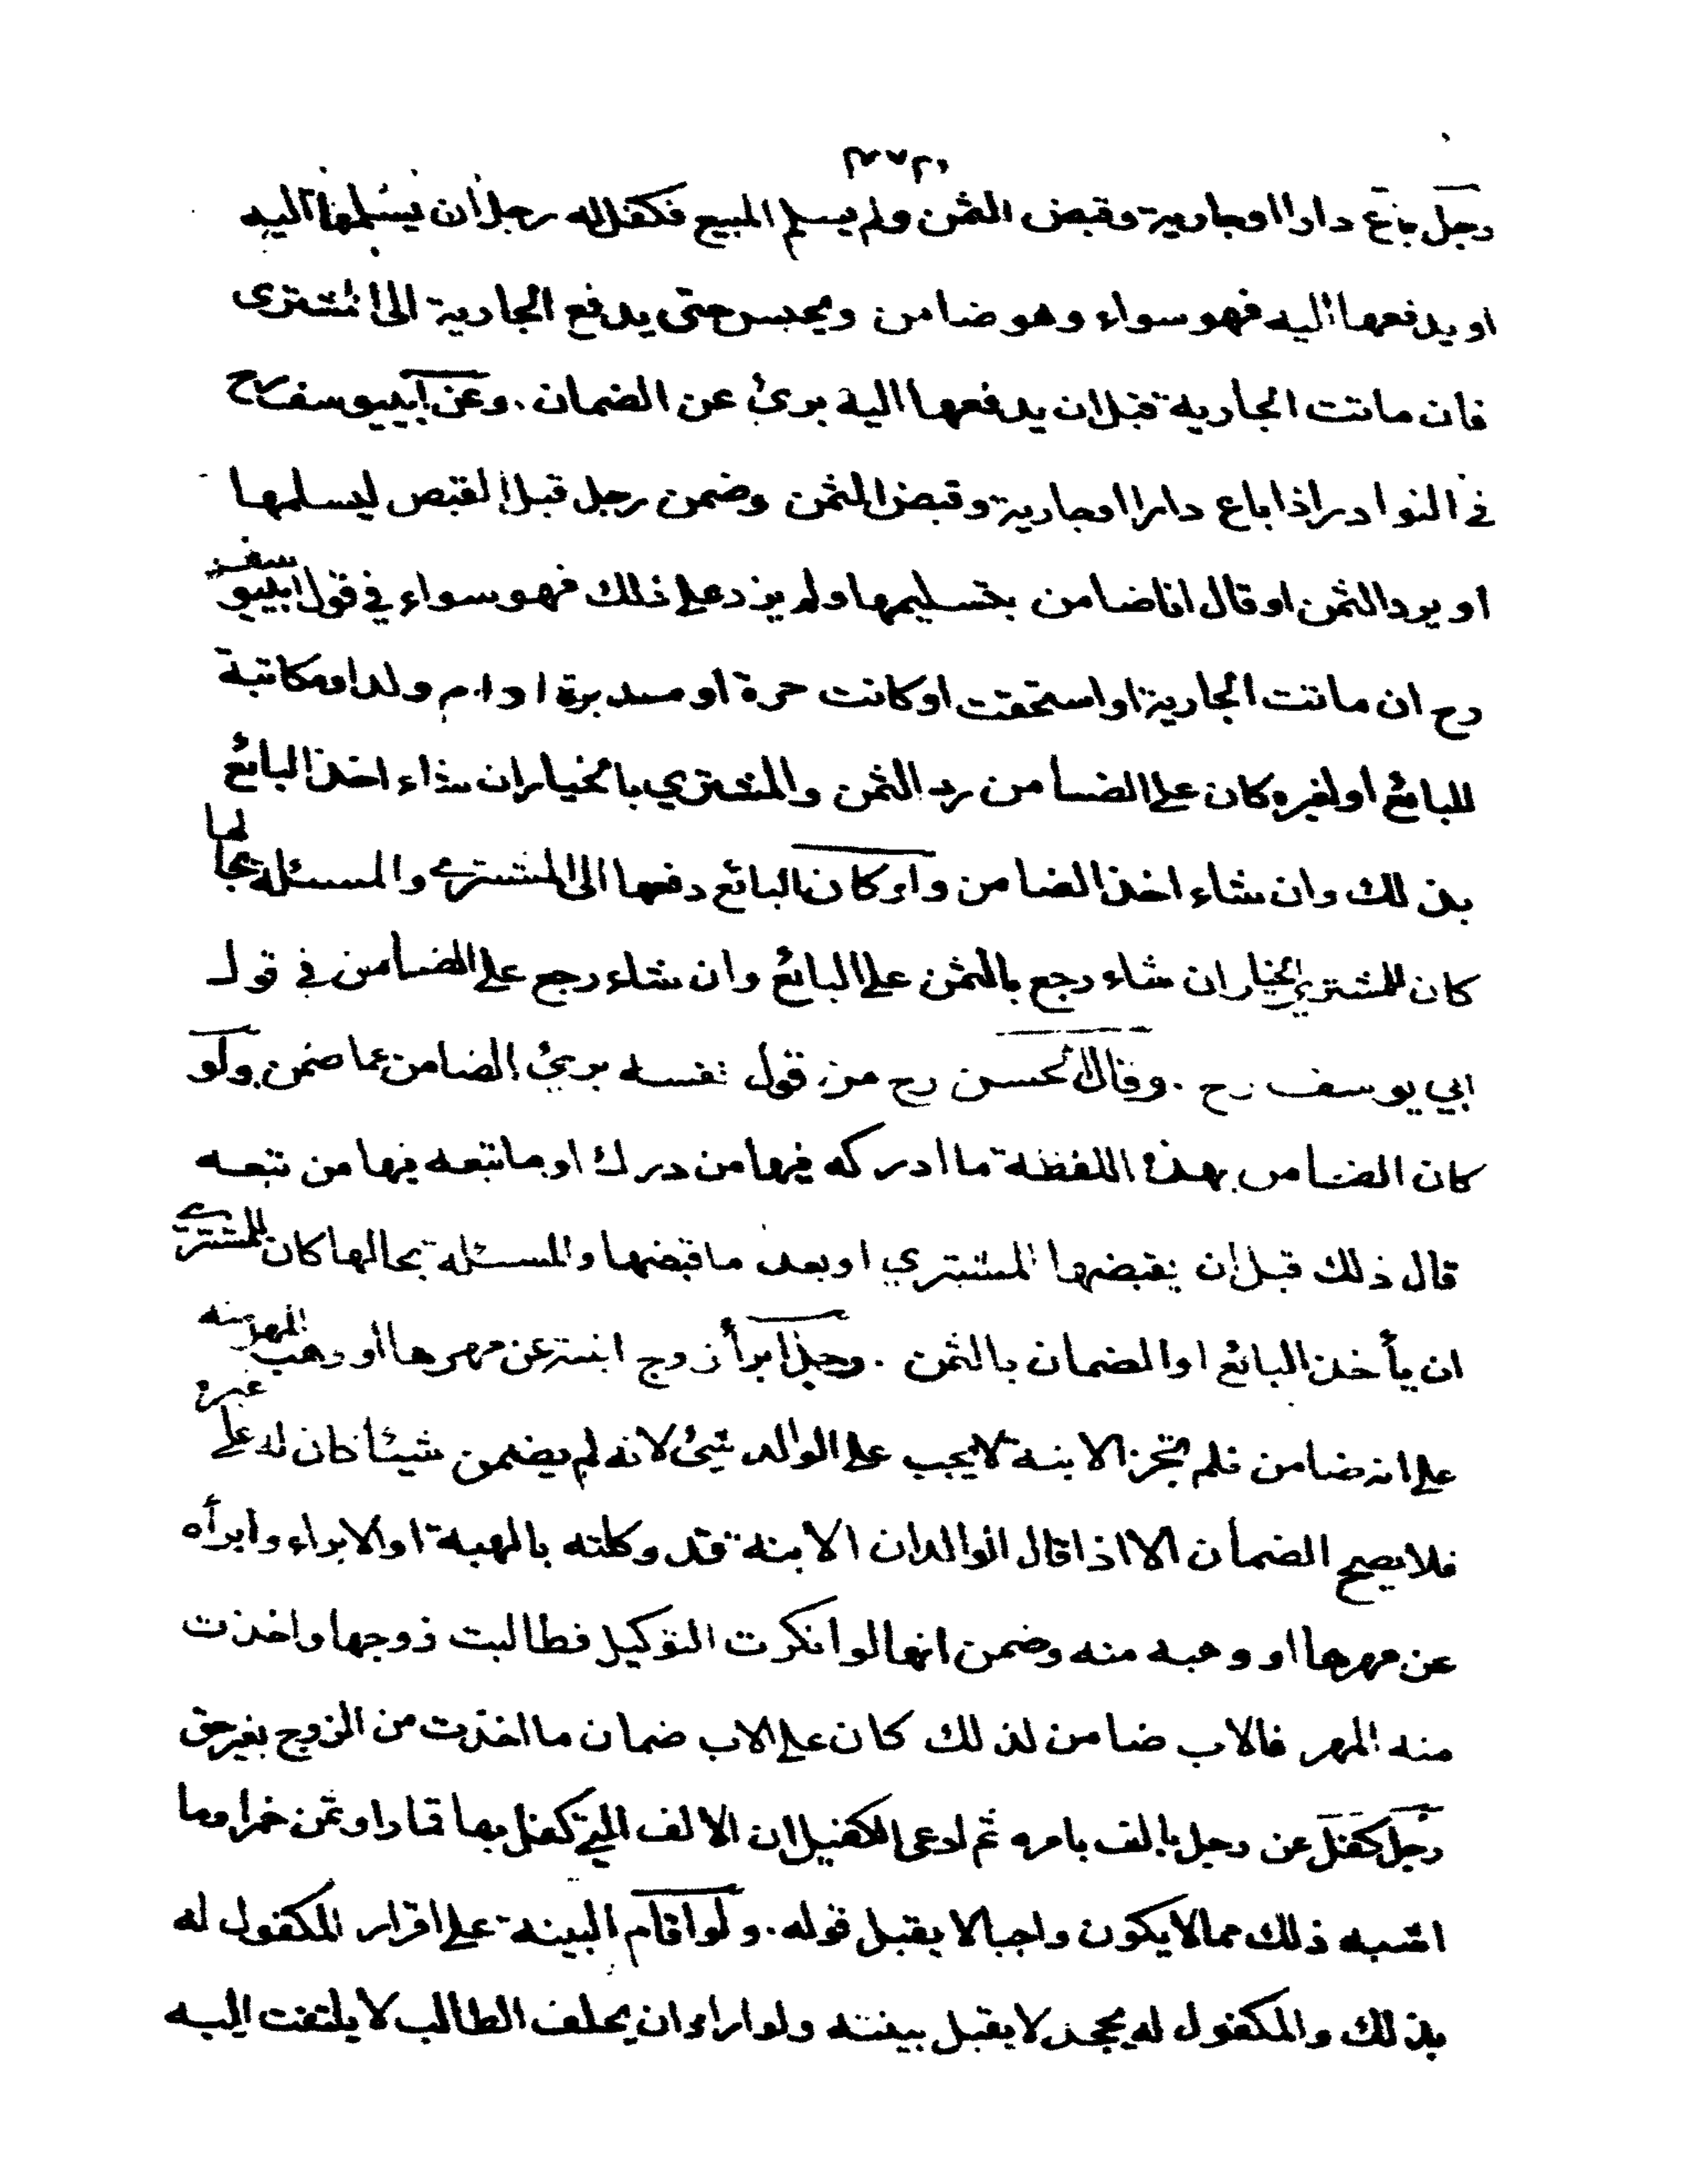 رجل باع دارا او جارية وقبض الثمن ولم يسلم المبيع فكفل له رجل ان يسلمها اليه
او يدفعها اليه فهو سواء وهو ضامن ويحبس حتى يدفع الجارية الى المشترى
فان ماتت الجارية قبل ان يدفعها الية برئ عن الضمان . وعن ابييوسف رح
في النوادر اذا باع دارا او جارية وقبض الثمن وضمن رجل قبل القبض ليسلمها
او يرد الثمن او قال انا ضامن بتسليمها ولم يزد على ذلك فهو سواء في قول ابييوسف
رح ان ماتت الجارية او استحقت او كانت حرة او مدبرة او ام ولد او مكاتبة
للبائع او لغيره كان على الضامن رد الثمن والمشتري بالخيار ان شاء اخذ البائع
بذلك وان شاء اخذ الضامن ولو كان البائع دفعها الى المشترى والمسئلة بحالها
كان للمشترى الخيار ان شاء رجع بالثمن على البائع وان شاء رجع على الضامن في قول
ابي يوسف رح . وقال الحسن رح من قول نفسه بريئ الضامن عما ضمن ولو
كان الضامن بهذه اللفظة ما ادركه فيها من درك او ما تبعه فيها من تبعه
قال ذلك قبل ان يقبضها المشتري او بعد ما قبضها والمسئلة بحالها كان للمشترى
ان يأخذ البائع او الضمان بالثمن . رجل ابرأ زوج ابنته عن مهرها او وهب المهر منه
على انه ضامن فلم تجز الابنة لا يجب على الوالد شيئ لانه لم يضمن شيئا كان له على غيره
فلا يصح الضمان الا اذا قال الوالد ان الابنة قد وكلته بالهبة او الابراء وابرأه
عن مهرها او وهبه منه وضمن انها لو انكرت التوكيل فطالبت زوجها واخذت
منه المهر فالاب ضامن لذلك كان على الاب ضمان ما اخذت من الزوج بغير حق
رجل كفل عن رجل بالف بامره ثم ادعى الكفيل ان الالف التي كفل بها قمار او ثمن خمر او ما
اشبه ذلك مما لا يكون واجبا لا يقبل قوله . ولو اقام البينة على اقرار المكفول له
بذلك والمكفول له يجحد لا يقبل بينته ولو اراد ان يحلف الطالب لا يلتفت اليه